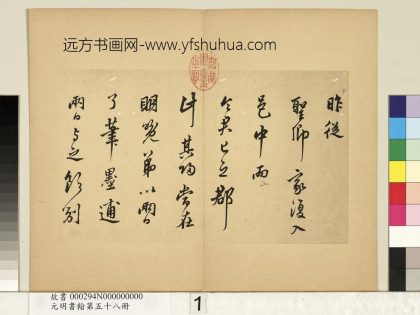 远方书画网-www.yfshuhua.com
昨從
聖卿家復入
邑中而
令君已立郡
計其歸當在
明晚弟以兩日
了筆墨逋
兩日與之敘別
故書 000294N000000000
元明書翰第五十八冊
1